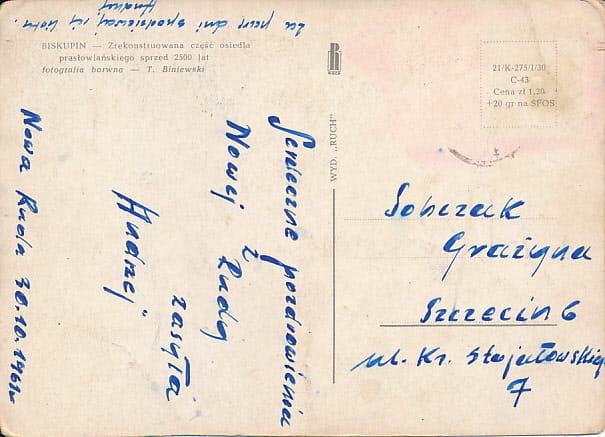 Za parę dni spodziewaj się listu.
Andrzej
BISKUPIN — Zrekonstruowana część osiedla
prasłowiańskiego sprzed 2500 lat
fotografia barwna — T. Biniewski
Serdeczne pozdrowienia
z
Nowej Rudy
zasyła
Andrzej
Nowa Ruda 30.10.196
WYD. „RUCH"
21/K-275/I/30
C-43
Cena zł 1,20
+20 gr na SFOS
Sobczak
Grażyna
Szczecin 6
ul. Kr.
7